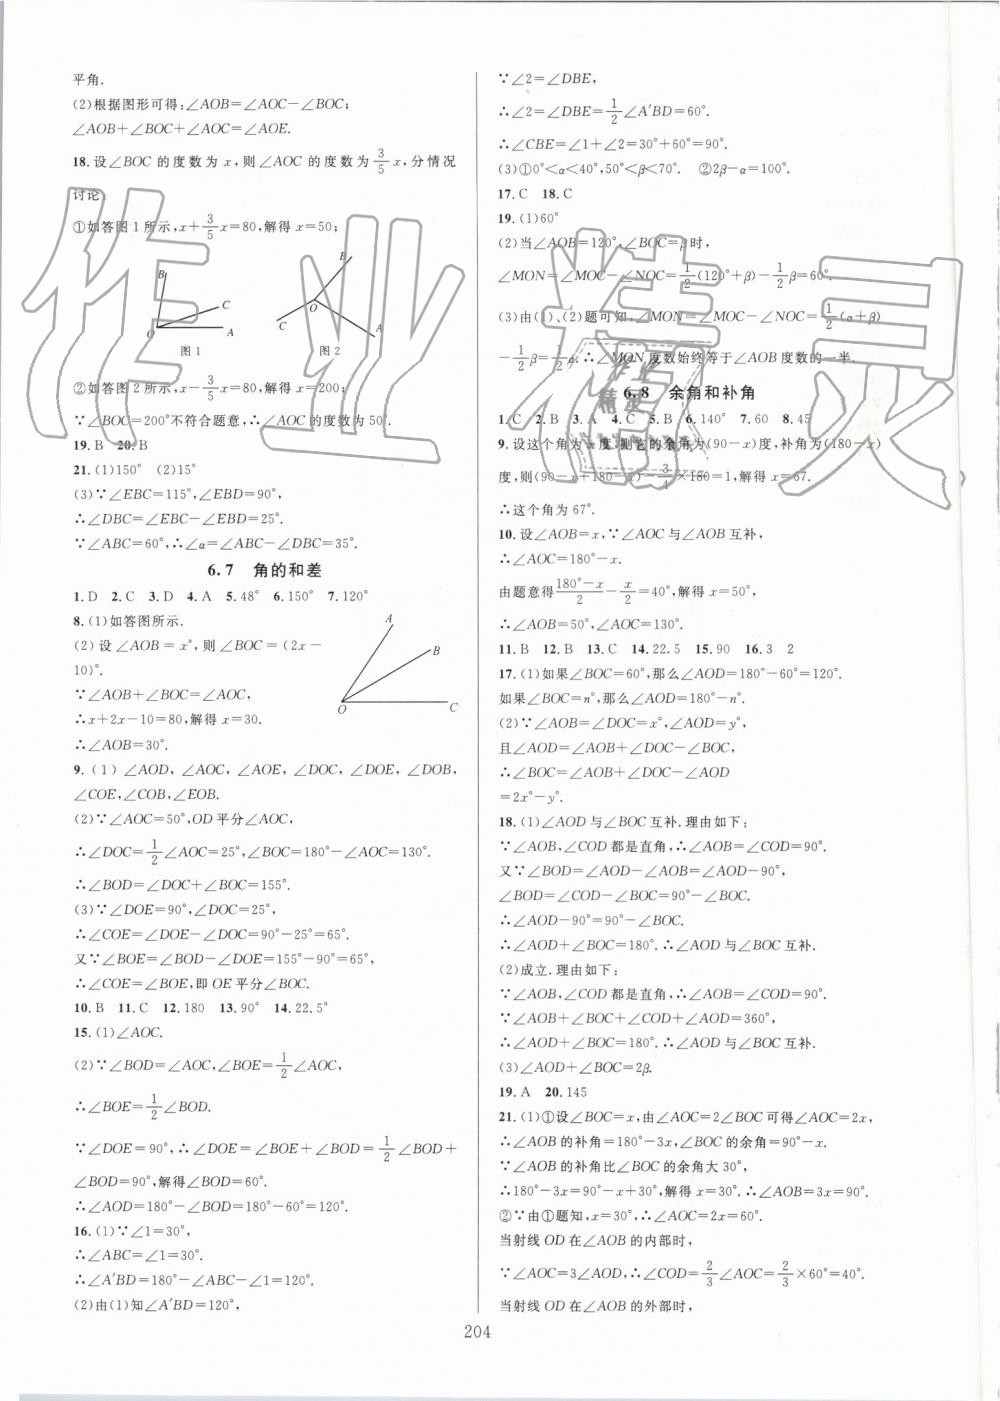 平角.
(2)根据图形可得:∠AOB=∠AOC-∠BOC;
∠AOB+∠BOC+∠AOC=∠AOE.
18.设∠BOC的度数为x,则∠AOC的度数为3/5x,分情况
讨论:
①如答图1所示,x+3/5x=80,解得x=50;
B
C
O
A
图1
B
O
C
A
图2
②如答图2所示,x-3/5x=80,解得x=200;
∵∠BOC=200°不符合题意,∴∠AOC的度数为50°.
19.B 20.B
21.(1)150° (2)15°
(3)∵∠EBC=115°,∠EBD=90°,
∴∠DBC=∠EBC-∠EBD=25°.
∵∠ABC=60°,∴∠α=∠ABC-∠DBC=35°.
6.7 角的和差
1.D 2.C 3.D 4.A 5.48° 6.150° 7.120°
8.(1)如答图所示.
(2)设∠AOB=x°,则∠BOC=(2x-
10)°.
∵∠AOB+∠BOC=∠AOC,
∴x+2x-10=80,解得x=30.
∴∠AOB=30°.
A
B
O
C
9.(1)∠AOD,∠AOC,∠AOE,∠DOC,∠DOE,∠DOB,
∠COE,∠COB,∠EOB.
(2)∵∠AOC=50°,OD平分∠AOC,
∴∠DOC=1/2∠AOC=25°,∠BOC=180°-∠AOC=130°.
∴∠BOD=∠DOC+∠BOC=155°.
(3)∵∠DOE=90°,∠DOC=25°,
∴∠COE=∠DOE-∠DOC=90°-25°=65°.
又∵∠BOE=∠BOD-∠DOE=155°-90°=65°,
∴∠COE=∠BOE,即OE平分∠BOC.
10.B 11.C 12.180 13.90° 14.22.5°
15.(1)∠AOC.
(2)∵∠BOD=∠AOC,∠BOE=1/2∠AOC,
∴∠BOE=1/2∠BOD.
∵∠DOE=90°,∴∠DOE=∠BOE+∠BOD=1/2∠BOD+
∠BOD=90°,解得∠BOD=60°.
∴∠AOD=180°-∠BOD=180°-60°=120°.
16.(1)∵∠1=30°,
∴∠ABC=∠1=30°.
∴∠A′BD=180°-∠ABC-∠1=120°.
(2)由(1)知∠A′BD=120°,
∵∠2=∠DBE,
∴∠2=∠DBE=1/2∠A′BD=60°.
∴∠CBE=∠1+∠2=30°+60°=90°.
(3)①0°<α<40°,50°<β<70°. ②2β-α=100°.
17.C 18.C
19.(1)60°
(2)当∠AOB=120°,∠BOC=β时,
∠MON=∠MOC-∠NOC=1/2(120°+β)-1/2β=60°.
(3)由(1)、(2)题可知:∠MON=∠MOC-∠NOC=1/2(α+β)
-1/2β=1/2α.∴∠MON度数始终等于∠AOB度数的一半.
6.8 余角和补角
1.C 2.B 3.A 4.C 5.B 6.140° 7.60 8.45
9.设这个角为x度,则它的余角为(90-x)度,补角为(180-x)
度,则(90-x+180-x)-3/4×180=1,解得x=67.
∴这个角为67°.
10.设∠AOB=x,∵∠AOC与∠AOB互补,
∴∠AOC=180°-x.
由题意得(180°-x)/2-x/2=40°,解得x=50°,
∴∠AOB=50°,∠AOC=130°.
11.B 12.B 13.C 14.22.5 15.90 16.3 2
17.(1)如果∠BOC=60°,那么∠AOD=180°-60°=120°.
如果∠BOC=n°,那么∠AOD=180°-n°.
(2)∵∠AOB=∠DOC=x°,∠AOD=y°,
且∠AOD=∠AOB+∠DOC-∠BOC,
∴∠BOC=∠AOB+∠DOC-∠AOD
=2x°-y°.
18.(1)∠AOD与∠BOC互补.理由如下:
∵∠AOB,∠COD都是直角,∴∠AOB=∠COD=90°.
又∵∠BOD=∠AOD-∠AOB=∠AOD-90°,
∠BOD=∠COD-∠BOC=90°-∠BOC.
∴∠AOD-90°=90°-∠BOC.
∴∠AOD+∠BOC=180°.∴∠AOD与∠BOC互补.
(2)成立.理由如下:
∵∠AOB,∠COD都是直角,∴∠AOB=∠COD=90°.
∵∠AOB+∠BOC+∠COD+∠AOD=360°,
∴∠AOD+∠BOC=180°.∴∠AOD与∠BOC互补.
(3)∠AOD+∠BOC=2β.
19.A 20.145
21.(1)①设∠BOC=x,由∠AOC=2∠BOC可得∠AOC=2x,
∴∠AOB的补角=180°-3x,∠BOC的余角=90°-x.
∵∠AOB的补角比∠BOC的余角大30°,
∴180°-3x=90°-x+30°,解得x=30°.∴∠AOB=3x=90°.
②∵由①题知,x=30°,∴∠AOC=2x=60°.
当射线OD在∠AOB的内部时,
∵∠AOC=3∠AOD,∴∠COD=2/3∠AOC=2/3×60°=40°.
当射线OD在∠AOB的外部时,
204
作业精灵